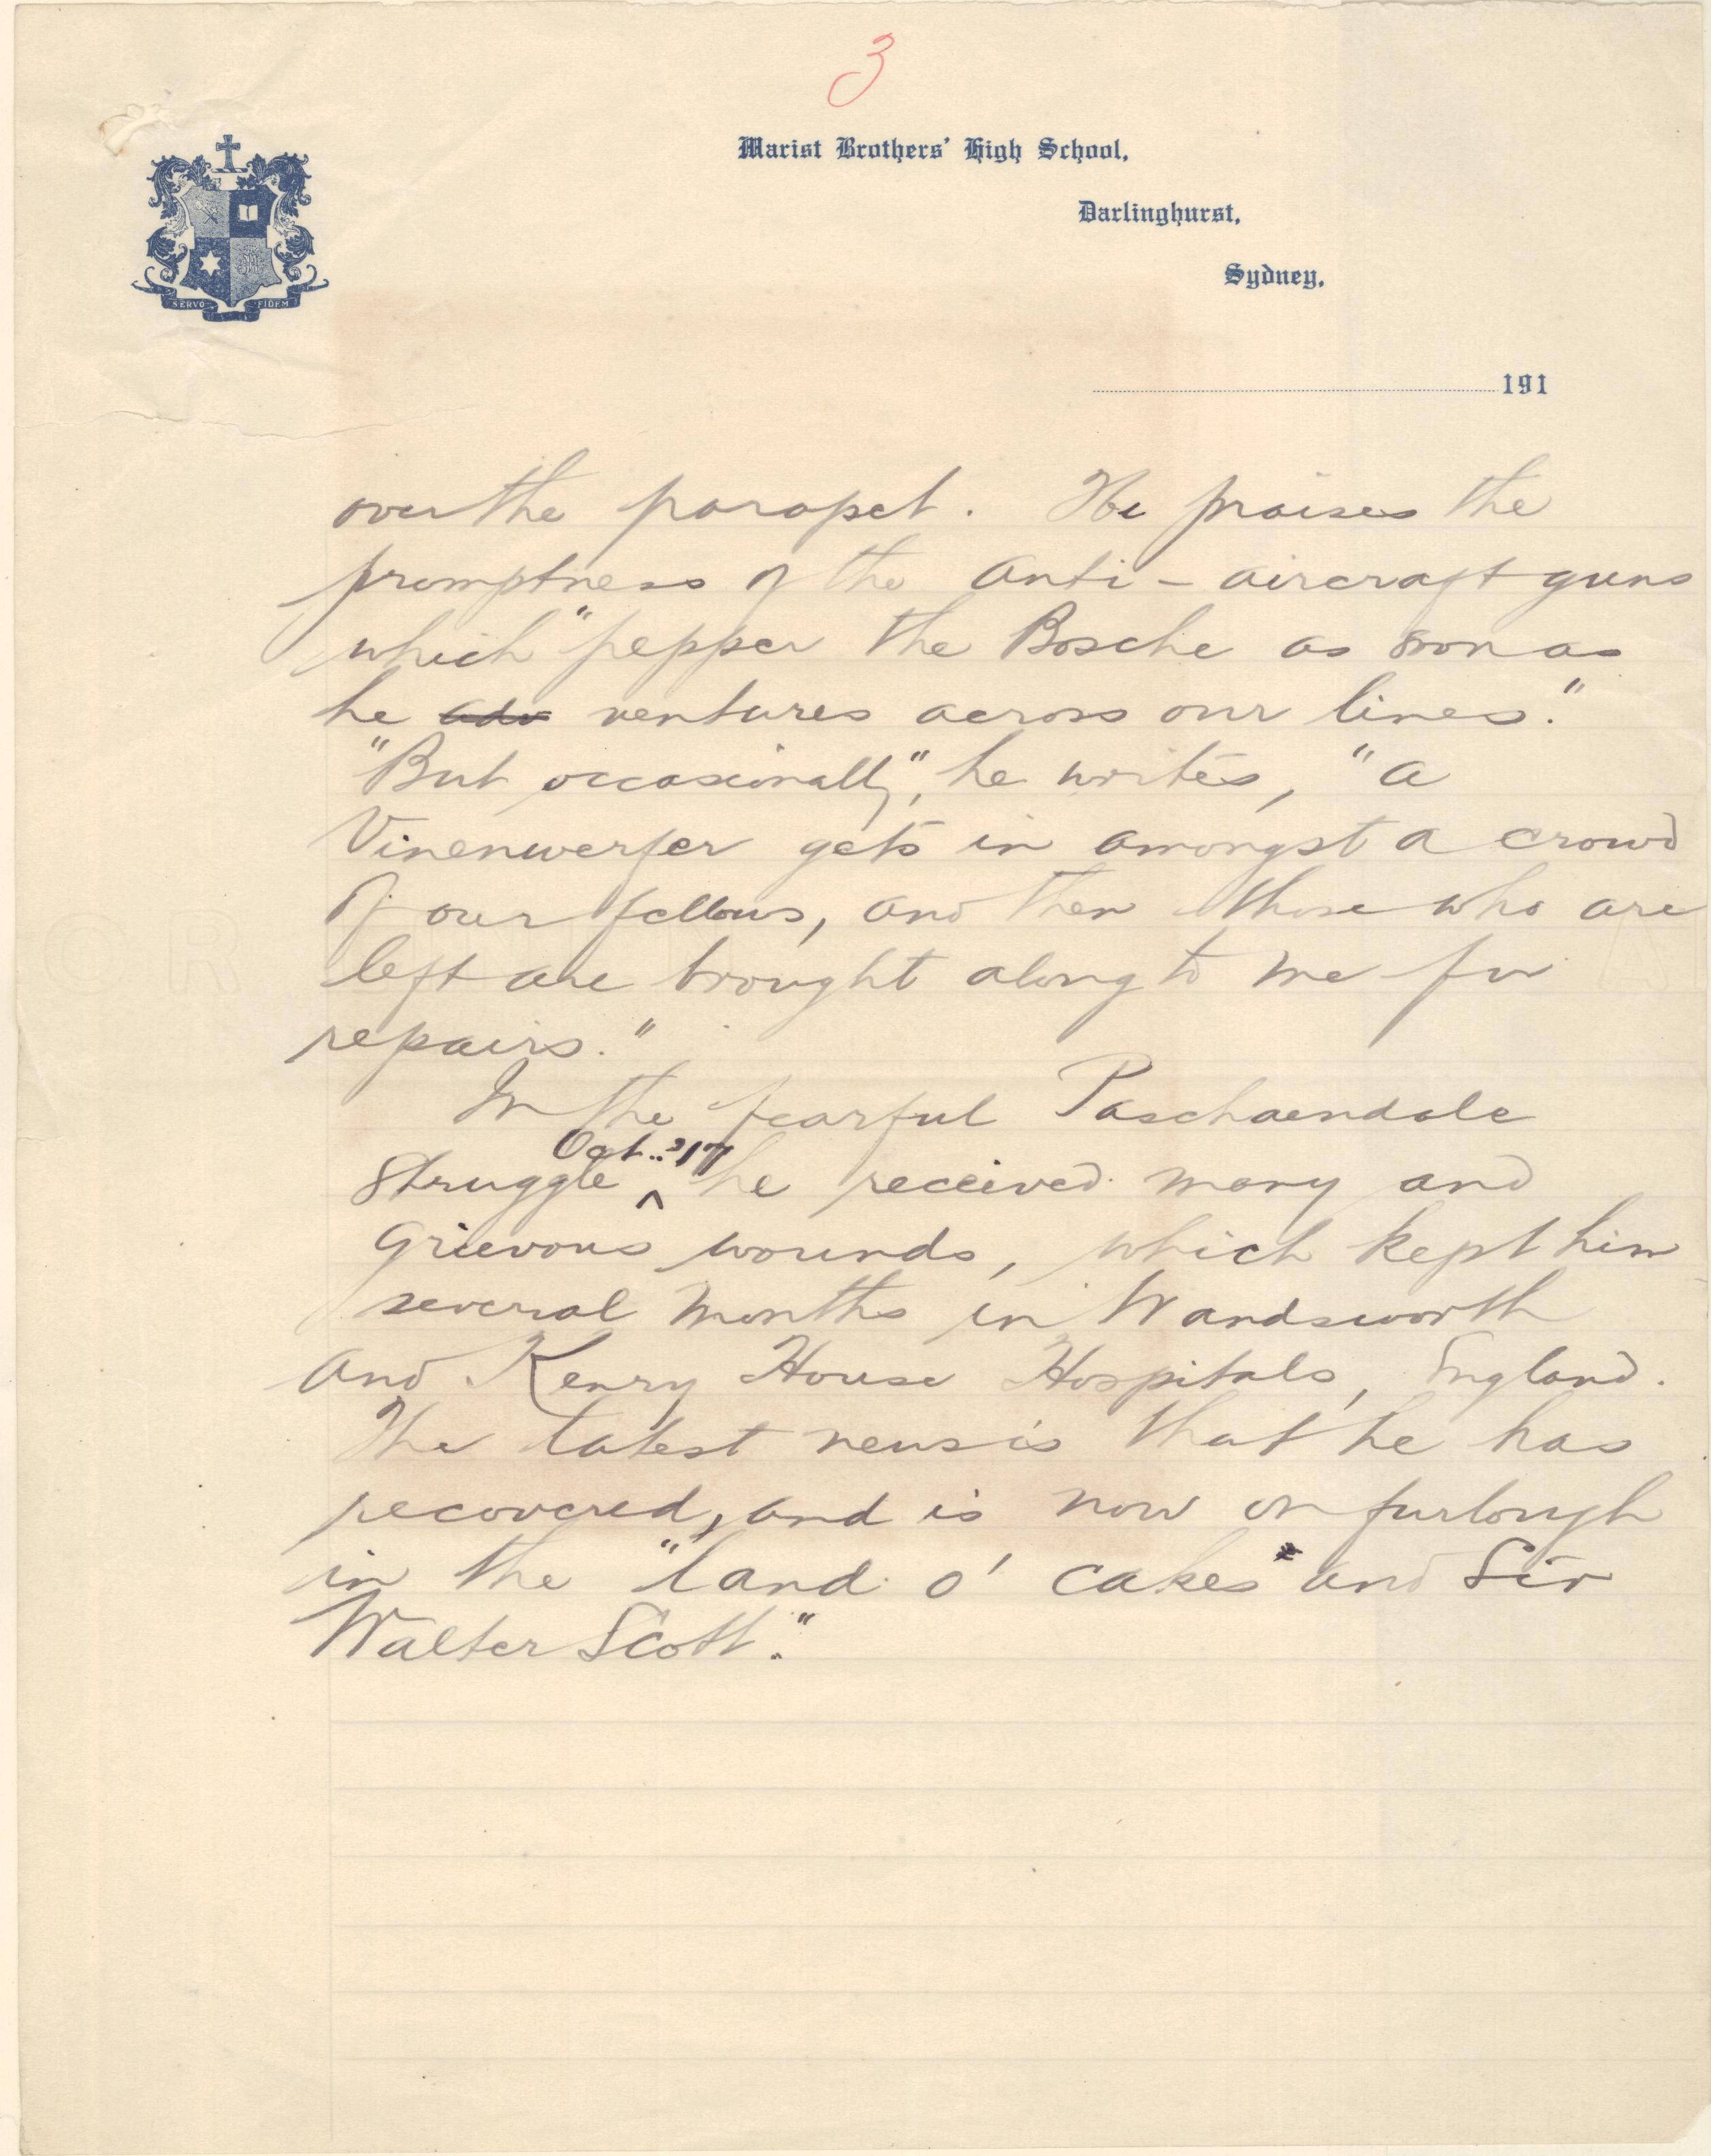 3
Marist Brothers' High School,
Darlinghurst,
Sydney,
SERVO FIDEM
191
over the parapet. He praises the
promptness of the anti-aircraft guns
which "pepper the Bosche as soon as
he adv ventures across our lines."
"But occasionally", he writes, "a
Vinenwerfer gets in amongst a crowd
of our fellows, and then those who are
left are brought along to me for
repairs."
In the fearful Paschaendale
Oct. '17
struggle ^ he received many and
grievous wounds, which kept him
several months in Wandsworth
and Kenry House Hospitals, England.
The latest news is that he has
recovered, and is now on furlough
in the "land o' cakes and Sir
Walter Scott."